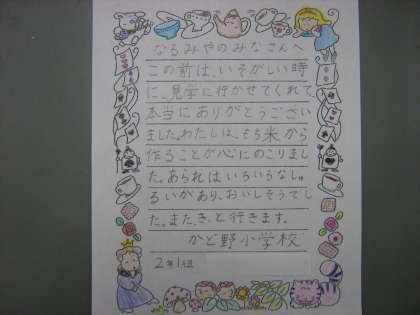 なるみやのみなさんへ
この前は、いそがしい時
に、見学に行かせてくれて
本当にありがとうござい
ました。わたしは、もち米から
作ることが心にのこりまし
た。あられはいろいろなしゅ
るいがあり、おいしそうでし
た。また、きっと行きます。
かど野小学校
2年1組